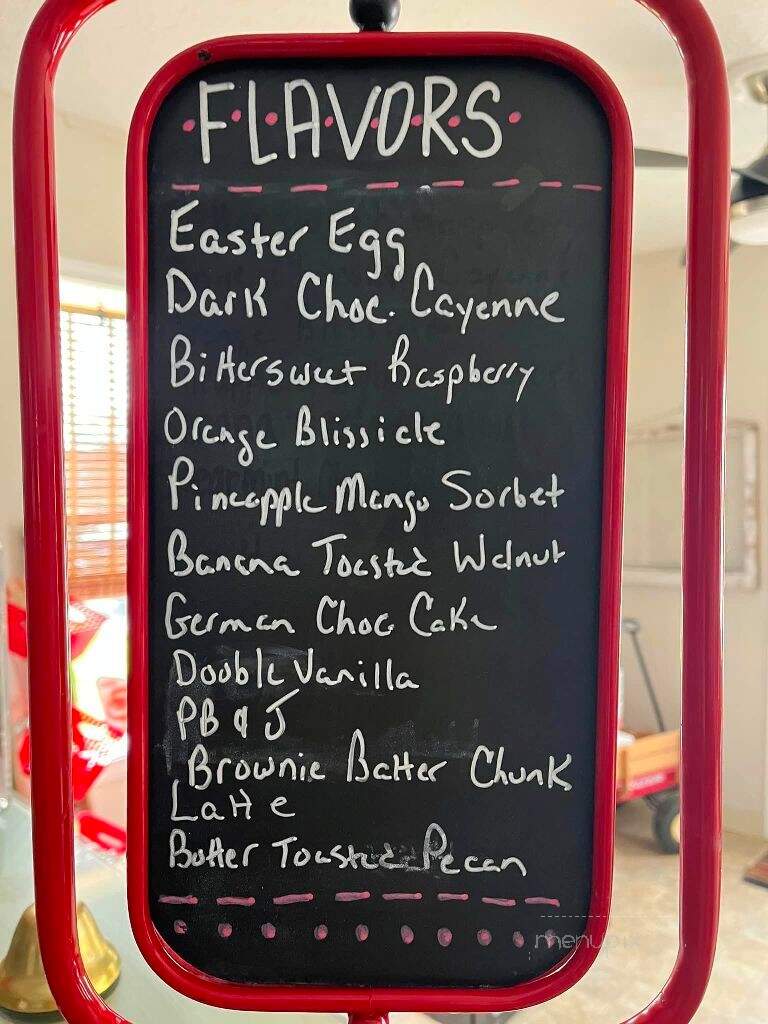 FLAVORS
Easter Egg
Dark Choc. Cayenne
Bittersweet Raspberry
Orange Blissicle
Pineapple Mango Sorbet
Banana Toasted Walnut
German Choc. Cake
Double Vanilla
PB & J
Brownie Batter Chunk
Latte
Butter Toasted Pecan